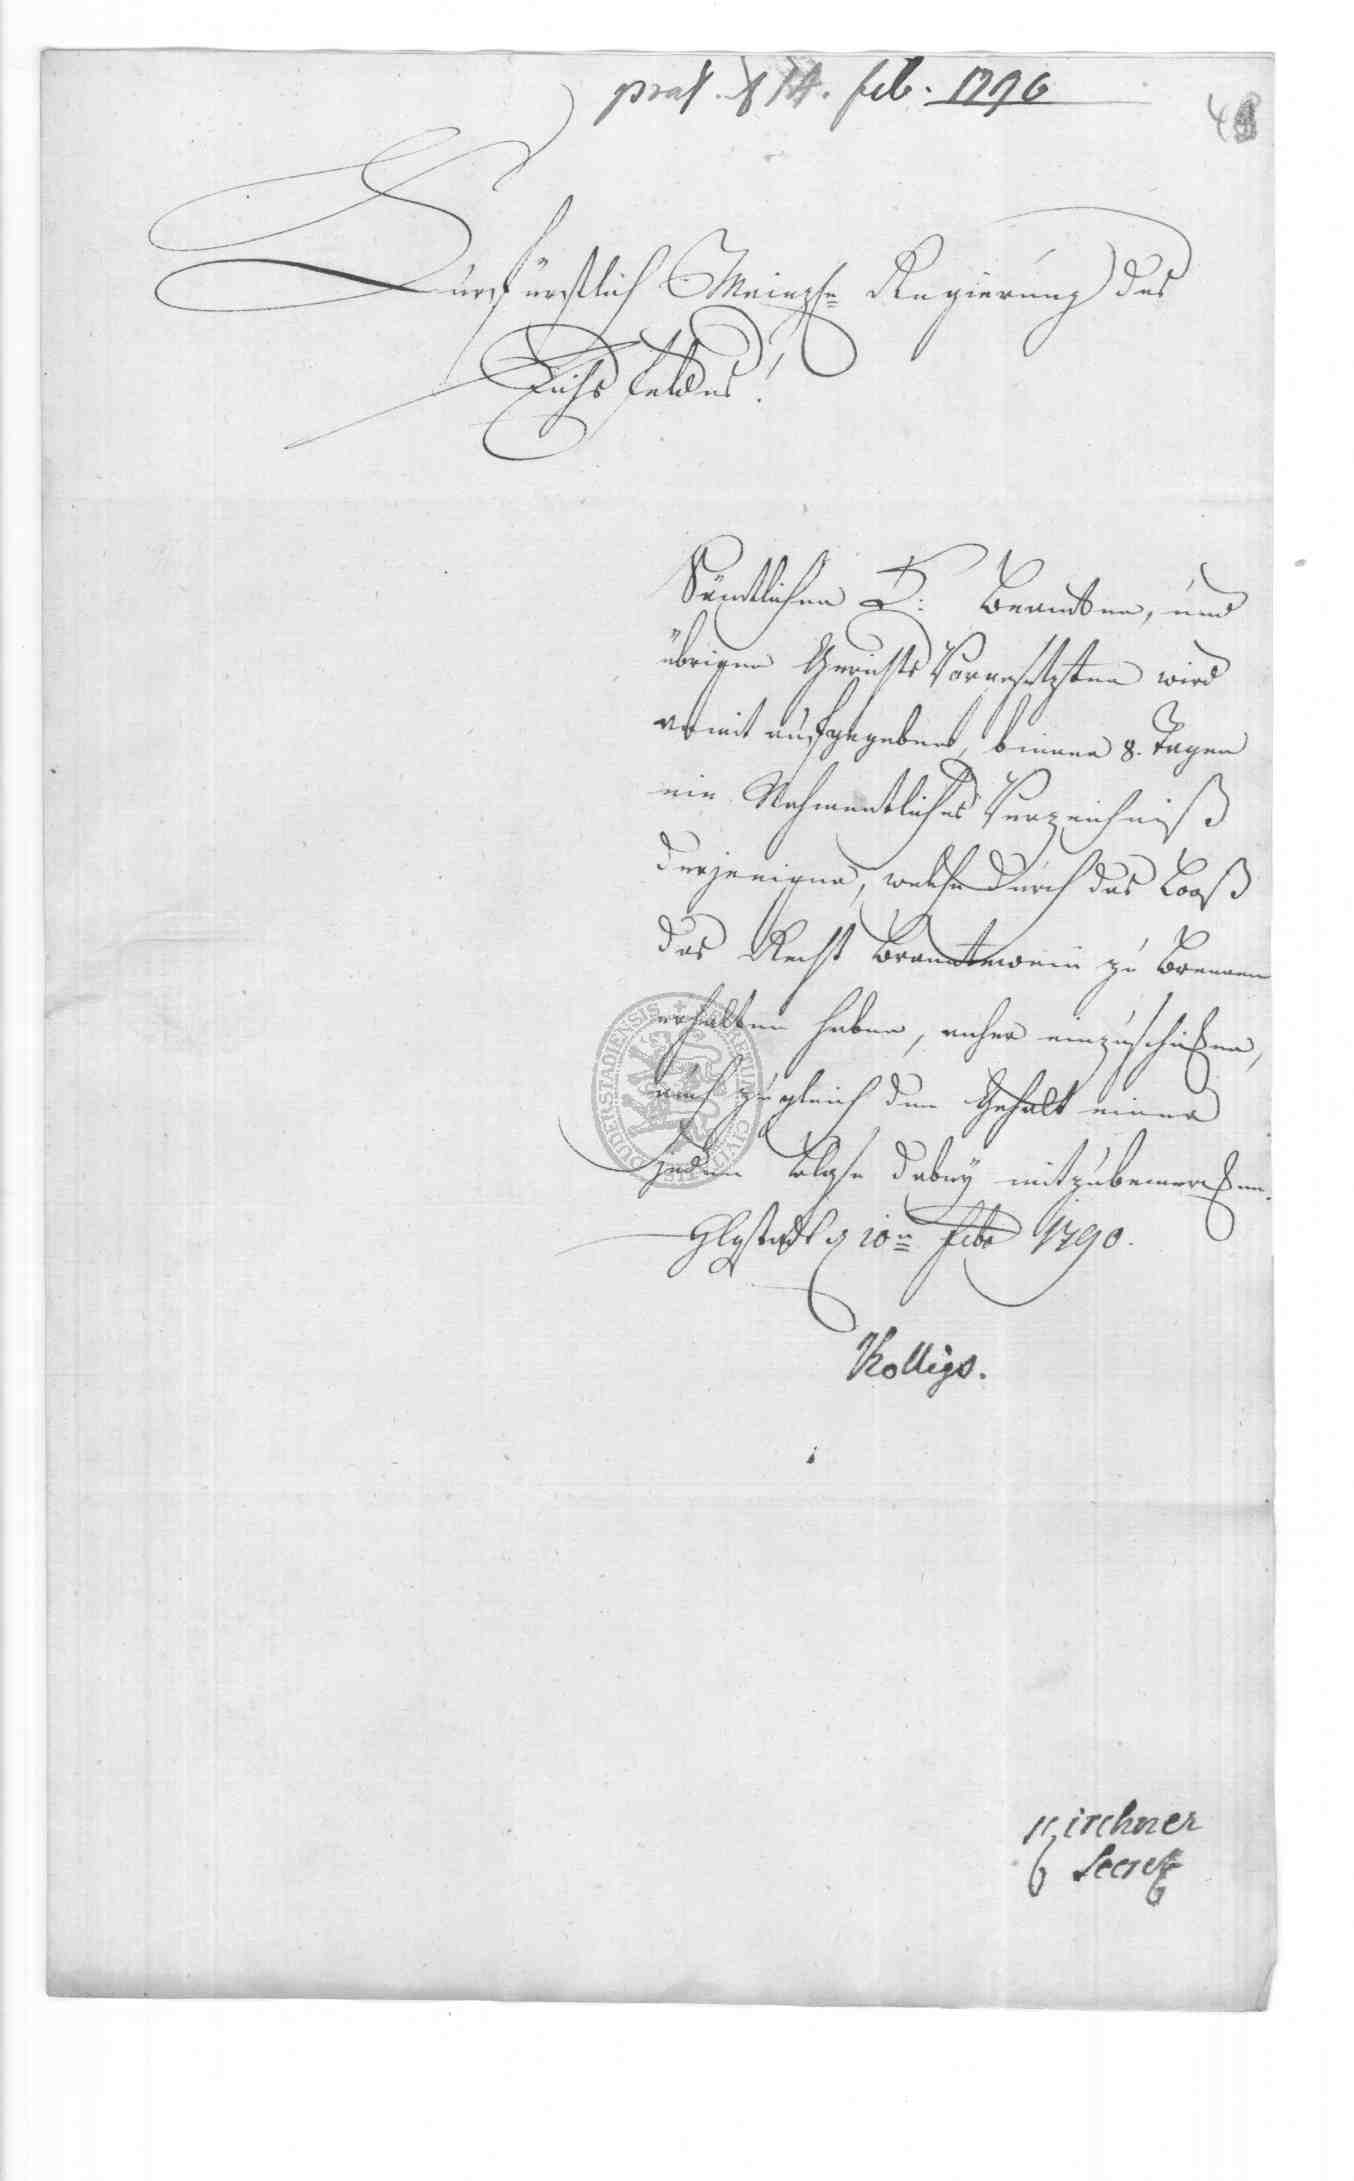 praes. d 14. feb. 1790
48
Kurfürstlich Mainzhe Regierung des
Eichsfeldes!
Sämtlichen K: Beamten, und
übrigen Gerichts Vorgesetzten wird
damit aufgegeben, binnen 8. Tagen
ein Nahmentliches Verzeichniß
derjenigen, welche durch das Looß
das Recht Brandtewein zu Brennen
erhalten haben, anher einzuschicken,
auch zugleich den Gehalt einer
jeden Blase dabey mit zu bemercken.
Hlgstadt d 10n Feb 1790.
Kolligs.
Kirchner
Secret
DUDERSTADIENSIS